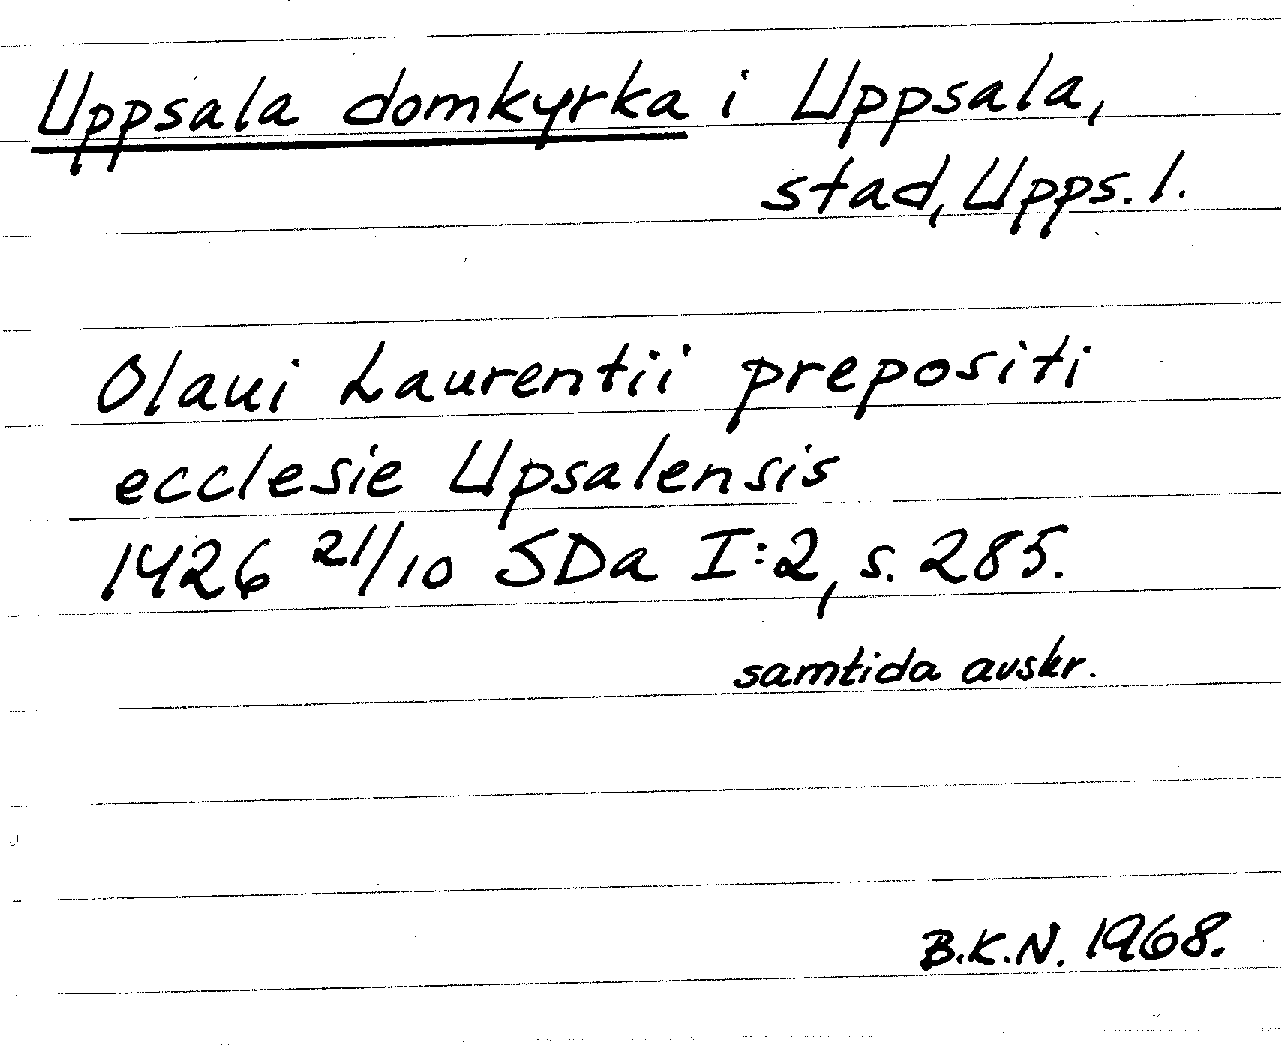 Uppsala domkyrka i Uppsala,
stad, Upps. l.
Olaui Laurentii prepositi
ecclesie Upsalensis
1426 21/10 SDa I:2, s. 285.
samtida avskr.
B.K.N. 1968.